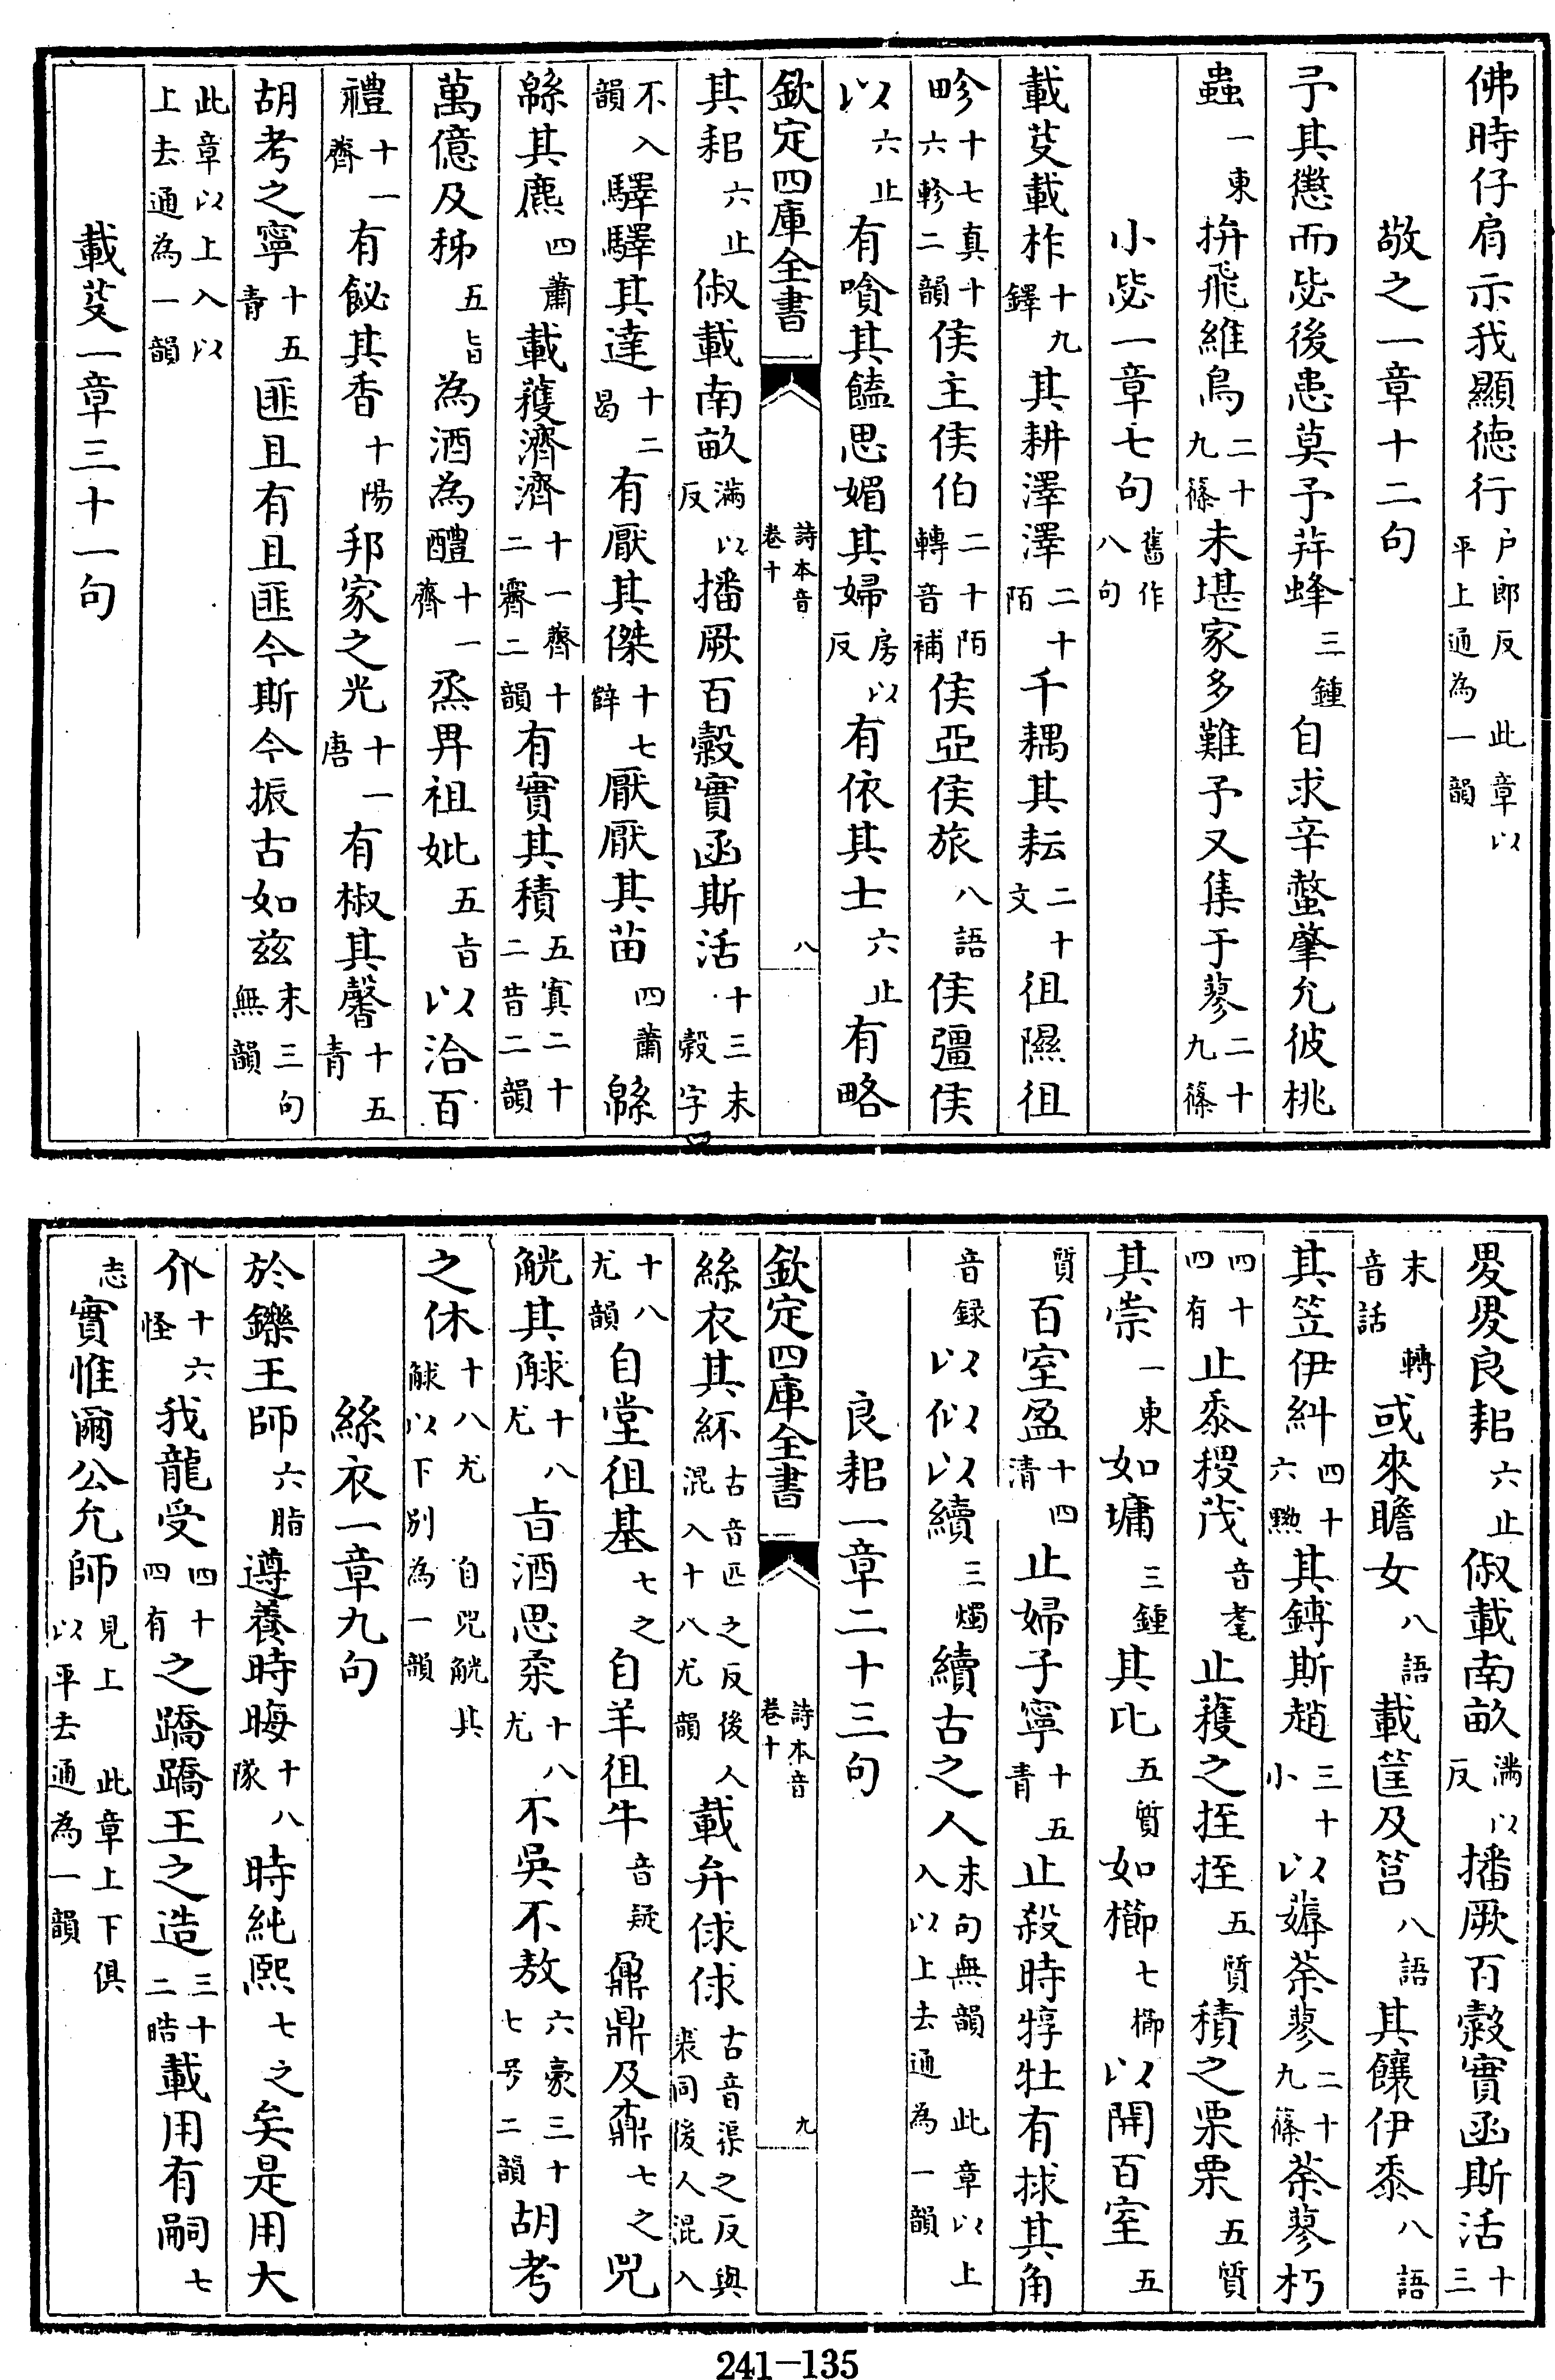 佛時仔肩示我顯德行户郎反此章以平上通為一韻
敬之一章十二句
予其懲而毖後患莫予荓蜂三鍾自求辛螫肇允彼桃
蟲一東拚飛維鳥二十九篠未堪家多難予又集于蓼二十九篠
小毖一章七句舊作八句
載芟載柞十九鐸其耕澤澤二十陌千耦其耘二十文徂隰徂
畛十七真十六軫二韻侯主侯伯二十陌轉音補侯亞侯旅八語侯彊侯
以六止有嗿其饁思媚其婦房以反有依其士六止有略
欽定四庫全書 詩本音卷十 八
其耜六止俶載南畝滿以反播厥百穀實函斯活十三末穀字
不入韻驛驛其達十二曷有厭其傑十七薛厭厭其苗四蕭緜
緜其麃四蕭載穫濟濟十一薺十二霽二韻有實其積五寘二十二昔二韻
萬億及秭五旨為酒為醴十一薺烝畀祖妣五旨以洽百
禮十一薺有飶其香十陽邦家之光十一唐有椒其馨十五青
胡考之寧十五青匪且有且匪今斯今振古如兹末三句無韻
此章以上入以上去通為一韻
載芟一章三十一句
畟畟良耜六止俶載南畝滿以反播厥百穀實函斯活十三
末轉音話或來瞻女八語載筐及筥八語其饟伊黍八語
其笠伊糾四十六黝其鎛斯趙三十小以薅荼蓼二十九篠荼蓼朽
四十四有止黍稷茂音耄止穫之挃挃五質積之栗栗五質
其崇一東如墉三鍾其比五質如櫛七櫛以開百室五
質百室盈十四清止婦子寧十五青止殺時犉牡有捄其角
音録以似以續三燭續古之人末句無韻此章以上入以上去通為一韻
良耜一章二十三句
欽定四庫全書 詩本音卷十 九
絲衣其紑古音匹之反後人混入十八尤韻載弁俅俅古音渠之反與裘同後人混入
十八尤韻自堂徂基七之自羊徂牛音疑鼐鼎及鼒七之兕
觥其觩十八尤旨酒思柔十八尤不吳不敖六豪三十七号二韻胡考
之休十八尤自兕觥其觩以下别為一韻
絲衣一章九句
於鑠王師六脂遵養時晦十八隊時純熙七之矣是用大
介十六怪我龍受四十四有之蹻蹻王之造三十二晧載用有嗣七
志實惟爾公允師見上此章上下俱以平去通為一韻
241-135